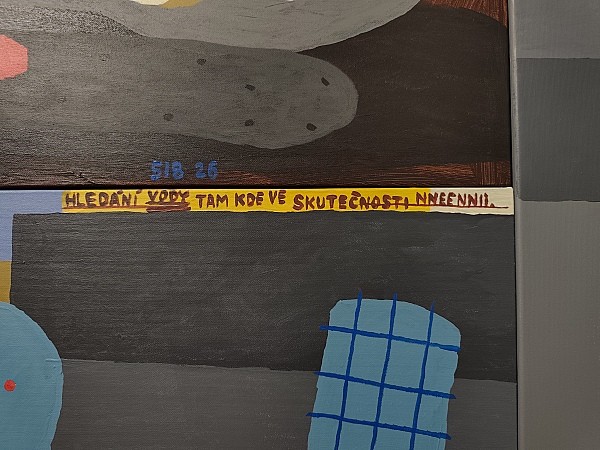 SIB 26
HLEDÁNÍ VODY TAM KDE VE SKUTEČNOSTI NNEENNII.